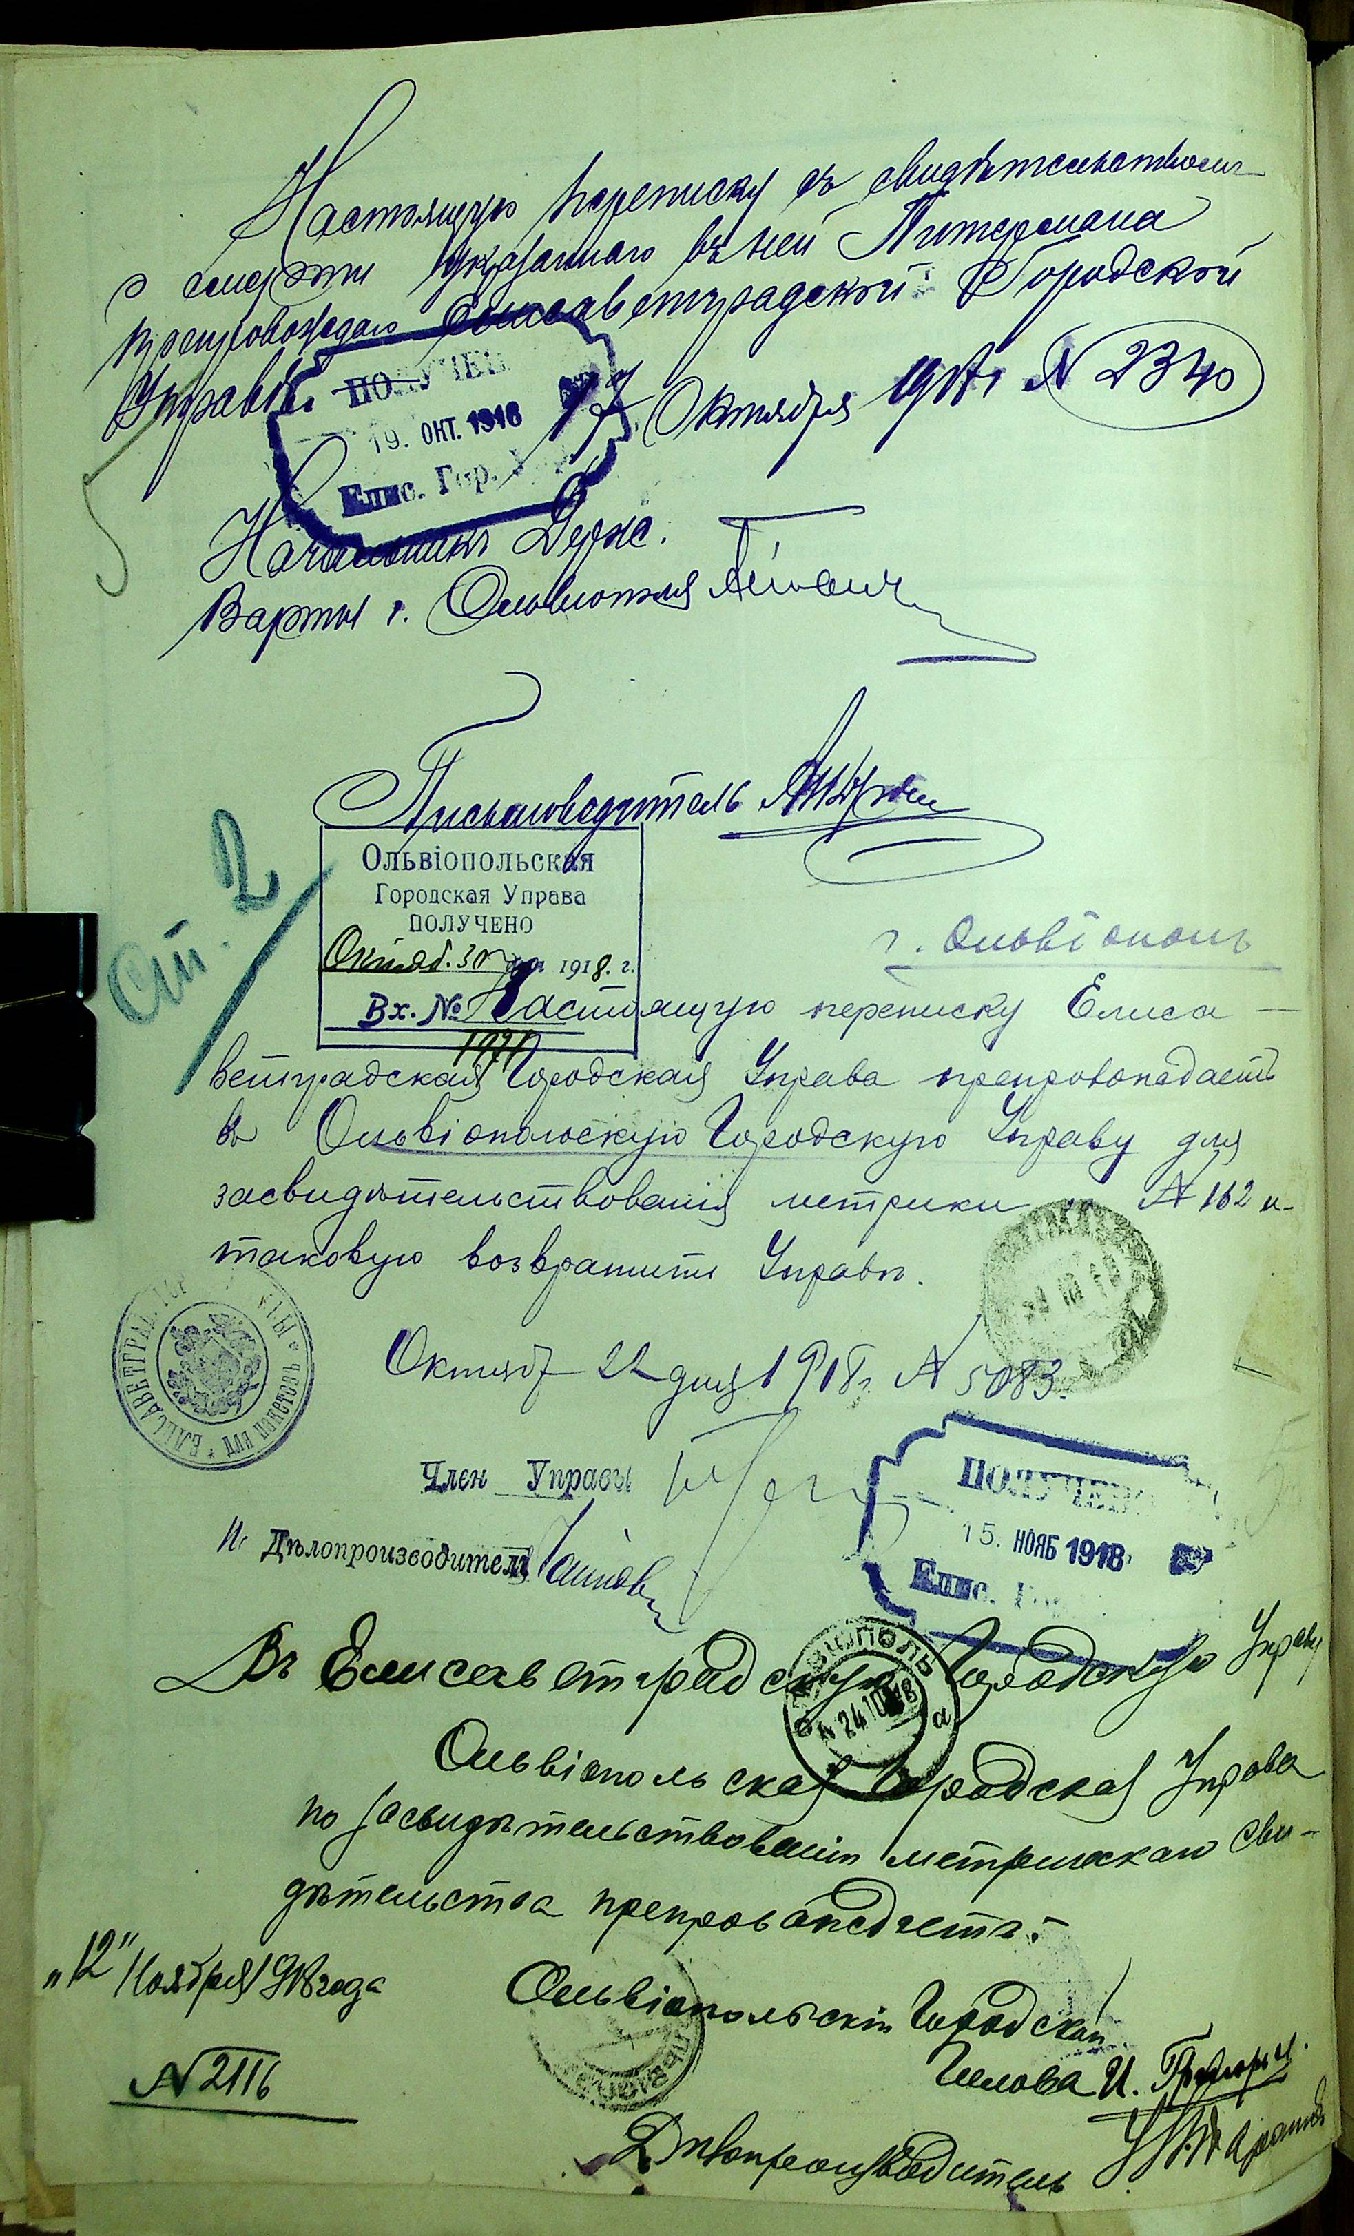 Настоящую переписку съ свидѣтельствомъ
о смерти указаннаго въ ней Питермана
препровождаю Елисаветградской Городской
Управѣ. 17 Октября 1918 г. № 2340
ПОЛУЧЕН
19. ОКТ. 1918
Елис. Гор.
Начальникъ Держ.
Варты г. Ольвіополя
Письмоводитель
Ст. 2
Ольвіопольская
Городская Управа
ПОЛУЧЕНО
Октяб. 30 дня 1918. г.
Вх. №
г. Ольвіополь
Настоящую переписку Елиса-
ветградская Городская Управа препровождаетъ
въ Ольвіопольскую Городскую Управу для
засвидѣтельствованія метрики № 162 и
таковую возвратить Управѣ.
Октября 22 дня 1918 г. № 5083.
Член Управы
И. Дѣлопроизводителя
ПОЛУЧЕН
15. НОЯБ 1918
Елис. Г
Въ Елисаветградскую Городскую Управу
ОЛЬВІОПОЛЬ
24 10 18
а
Ольвіопольская Городская Управа
по засвидѣтельствованіи метрическаго сви-
дѣтельства препровождаетъ.
„12" Ноября 1918 года
№ 2116
Ольвіопольскій Городской
Голова И.
Дѣлопроизводитель